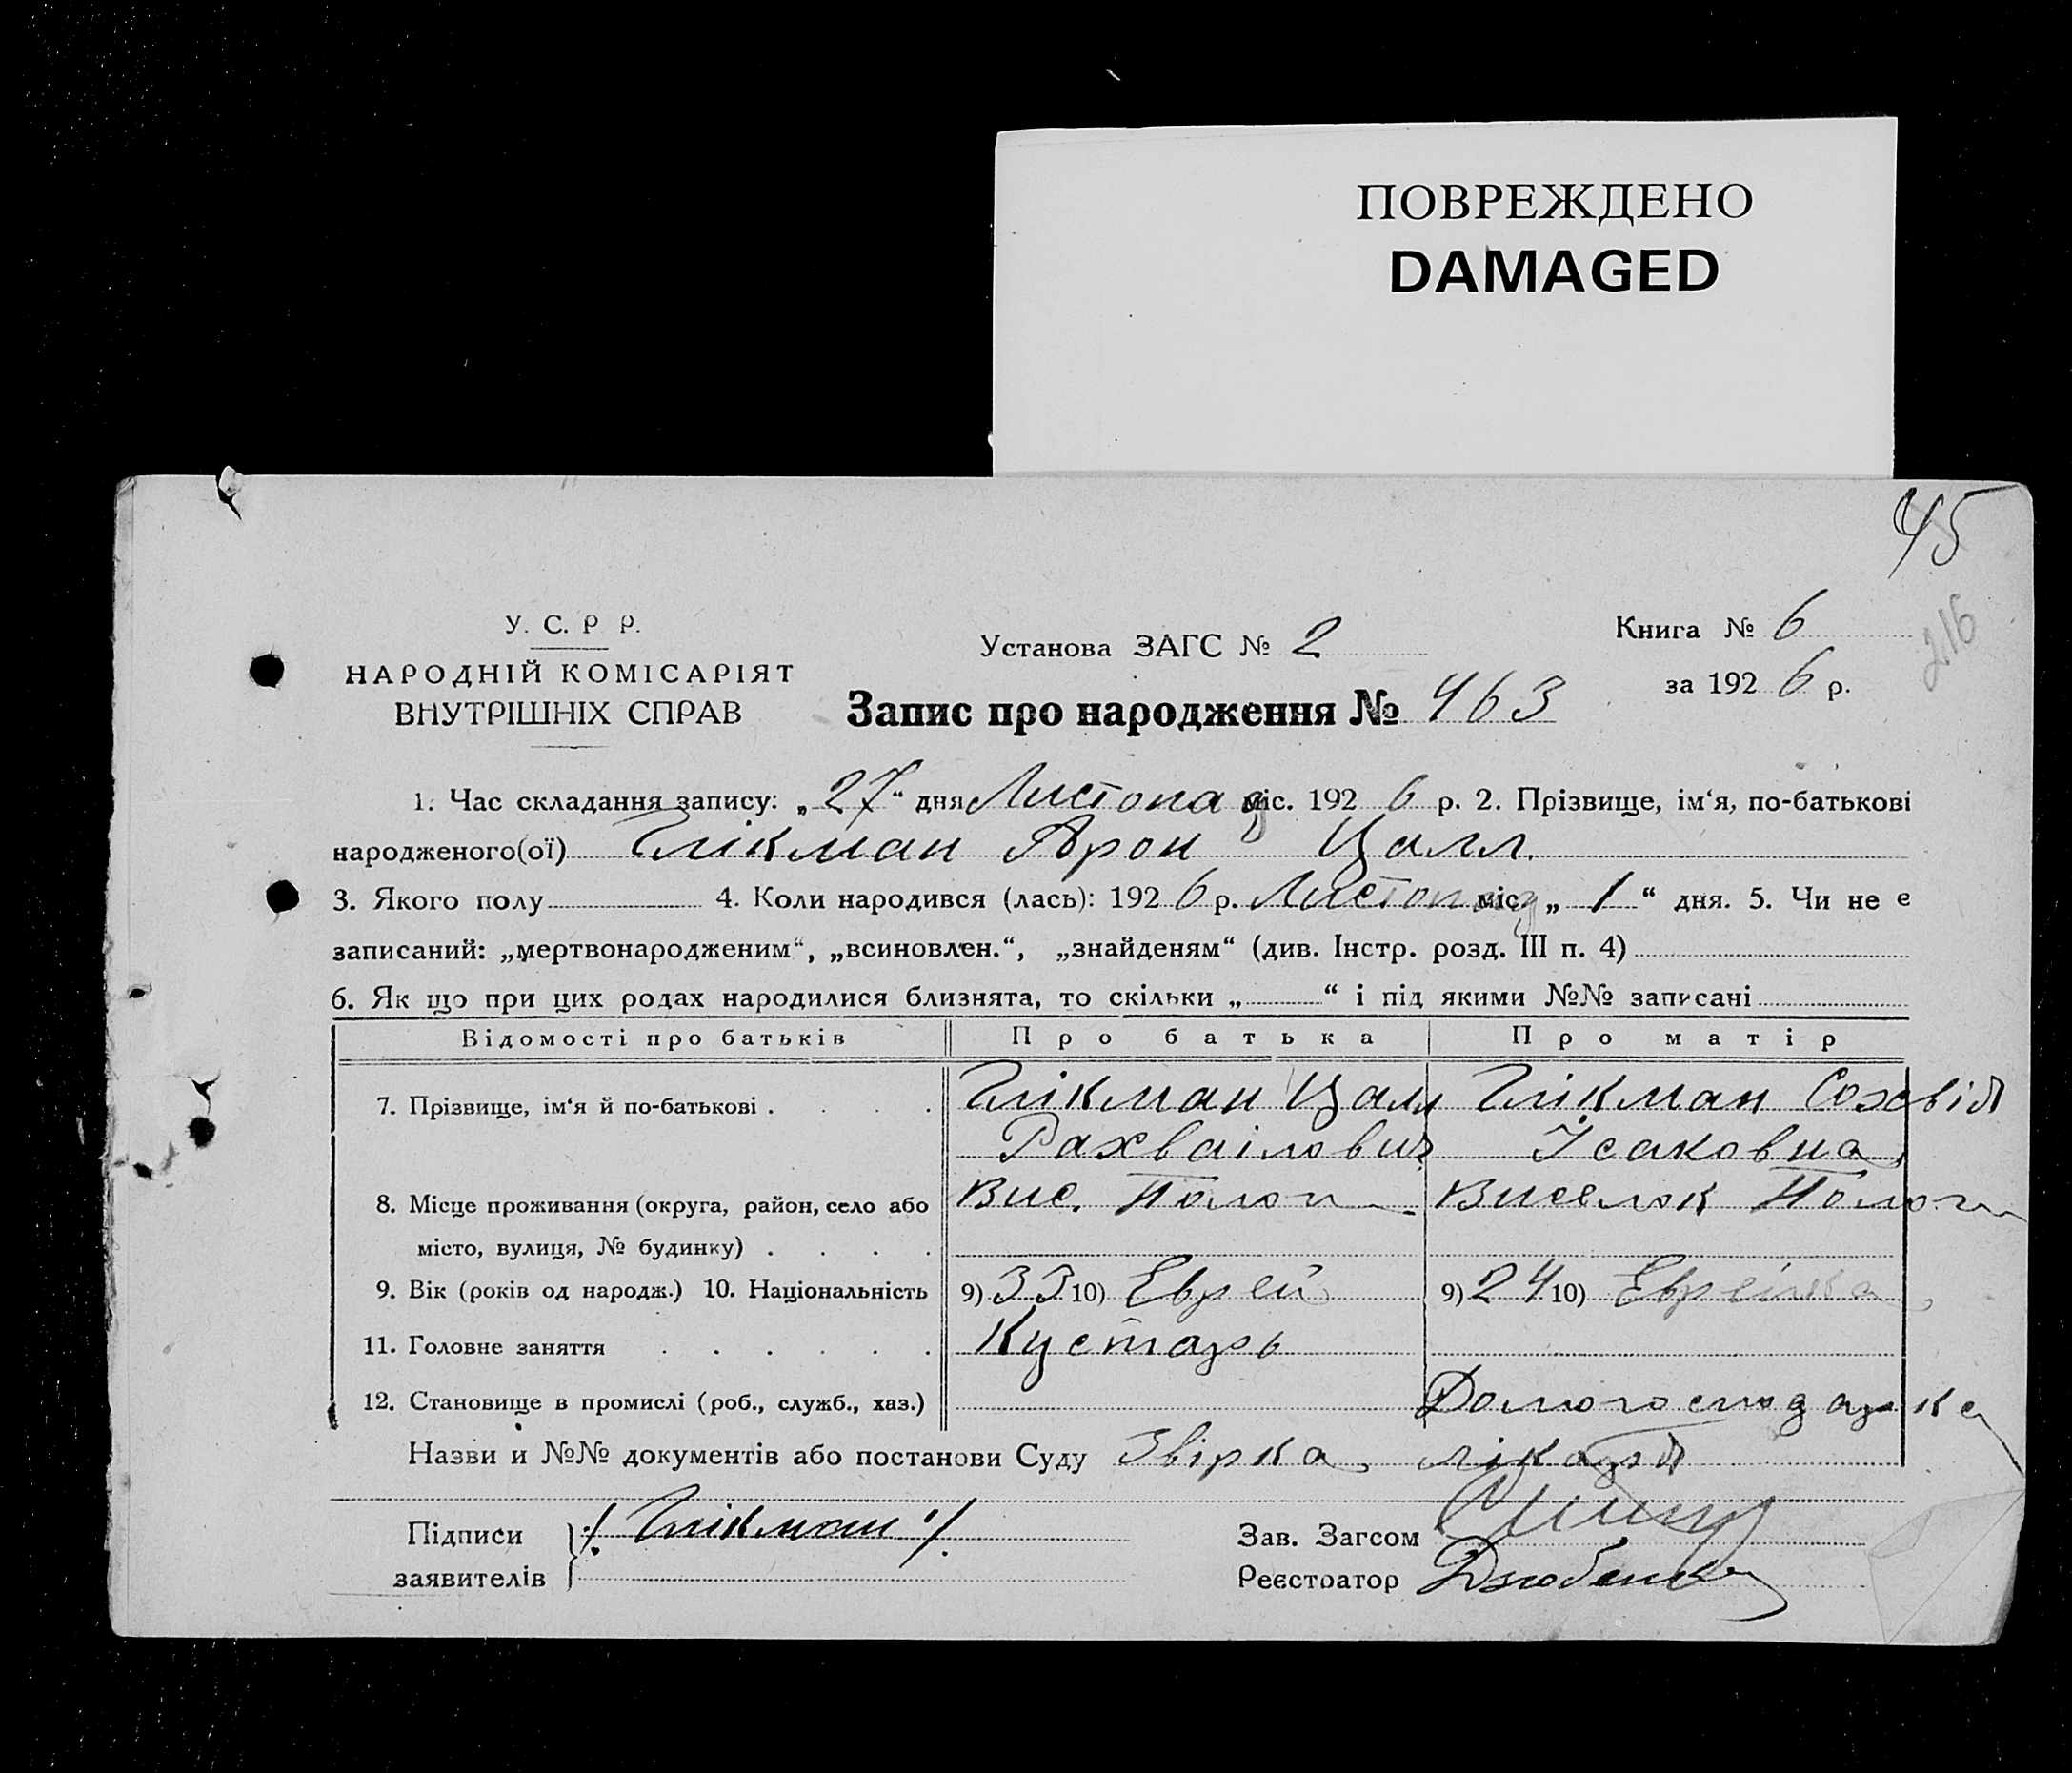 ПОВРЕЖДЕНО
DAMAGED
45
216
У. С. Р Р.
НАРОДНІЙ КОМІСАРІЯТ
ВНУТРІШНІХ СПРАВ
Установа ЗАГС № 2
Книга № 6
за 1926 р.
Запис про народження № 463
1. Час складання запису: „27“ дня Листопад міс. 1926 р. 2. Прізвище, ім‘я, по-батькові
народженого(ої) Глікман Арон Цалл.
3. Якого полу 4. Коли народився (лась): 1926 р. Листопад міс. „1“ дня. 5. Чи не є
записаний: „мертвонародженим“, „всиновлен.“, „знайденям“ (див. Інстр. розд. III п. 4)
6. Як що при цих родах народилися близнята, то скільки „ “ і під якими №№ записані
Відомості про батьків Про батька Про матір
7. Прізвище, ім‘я й по-батькові . . . . . Глікман Цалл Глікман
Рахваілович Ісаковна
8. Місце проживання (округа, район, село або Вис. Пологи Виселок Пологи
місто, вулиця, № будинку) . . . .
9. Вік (років од народж.) 10. Національність 9) 33 10) Еврей 9) 24 10) Еврейка
11. Головне заняття . . . . . . Кустарь
12. Становище в промислі (роб., служб., хаз.) Домогосподарка
Назви и №№ документів або постанови Суду Звірка лікаря
Підписи /. Глікман ./
заявителів
Зав. Загсом
Реєстратор Дзюбенко